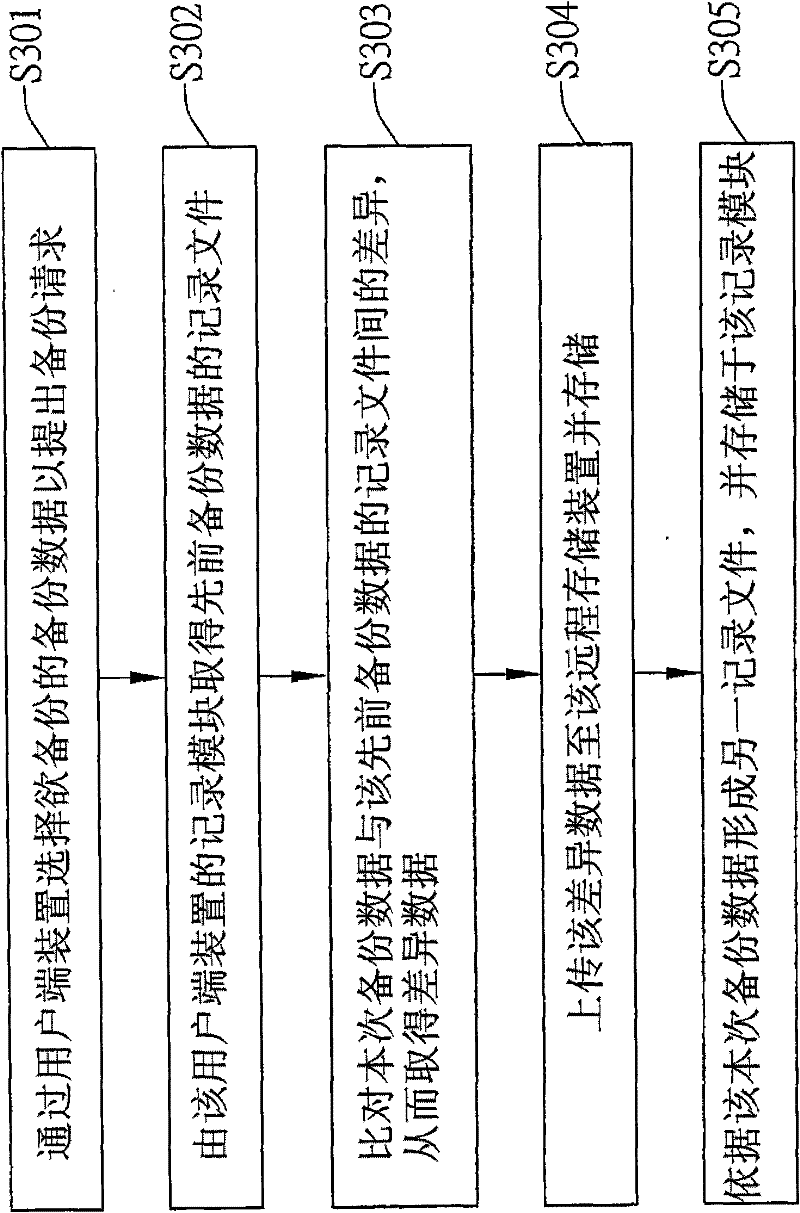 S301
通过用户端装置选择欲备份的备份数据以提出备份请求
S302
由该用户端装置的记录模块取得先前备份数据的记录文件
S303
比对本次备份数据与该先前备份数据的记录文件间的差异，
从而取得差异数据
S304
上传该差异数据至该远程存储装置并存储
S305
依据该本次备份数据形成另一记录文件，并存储于该记录模块